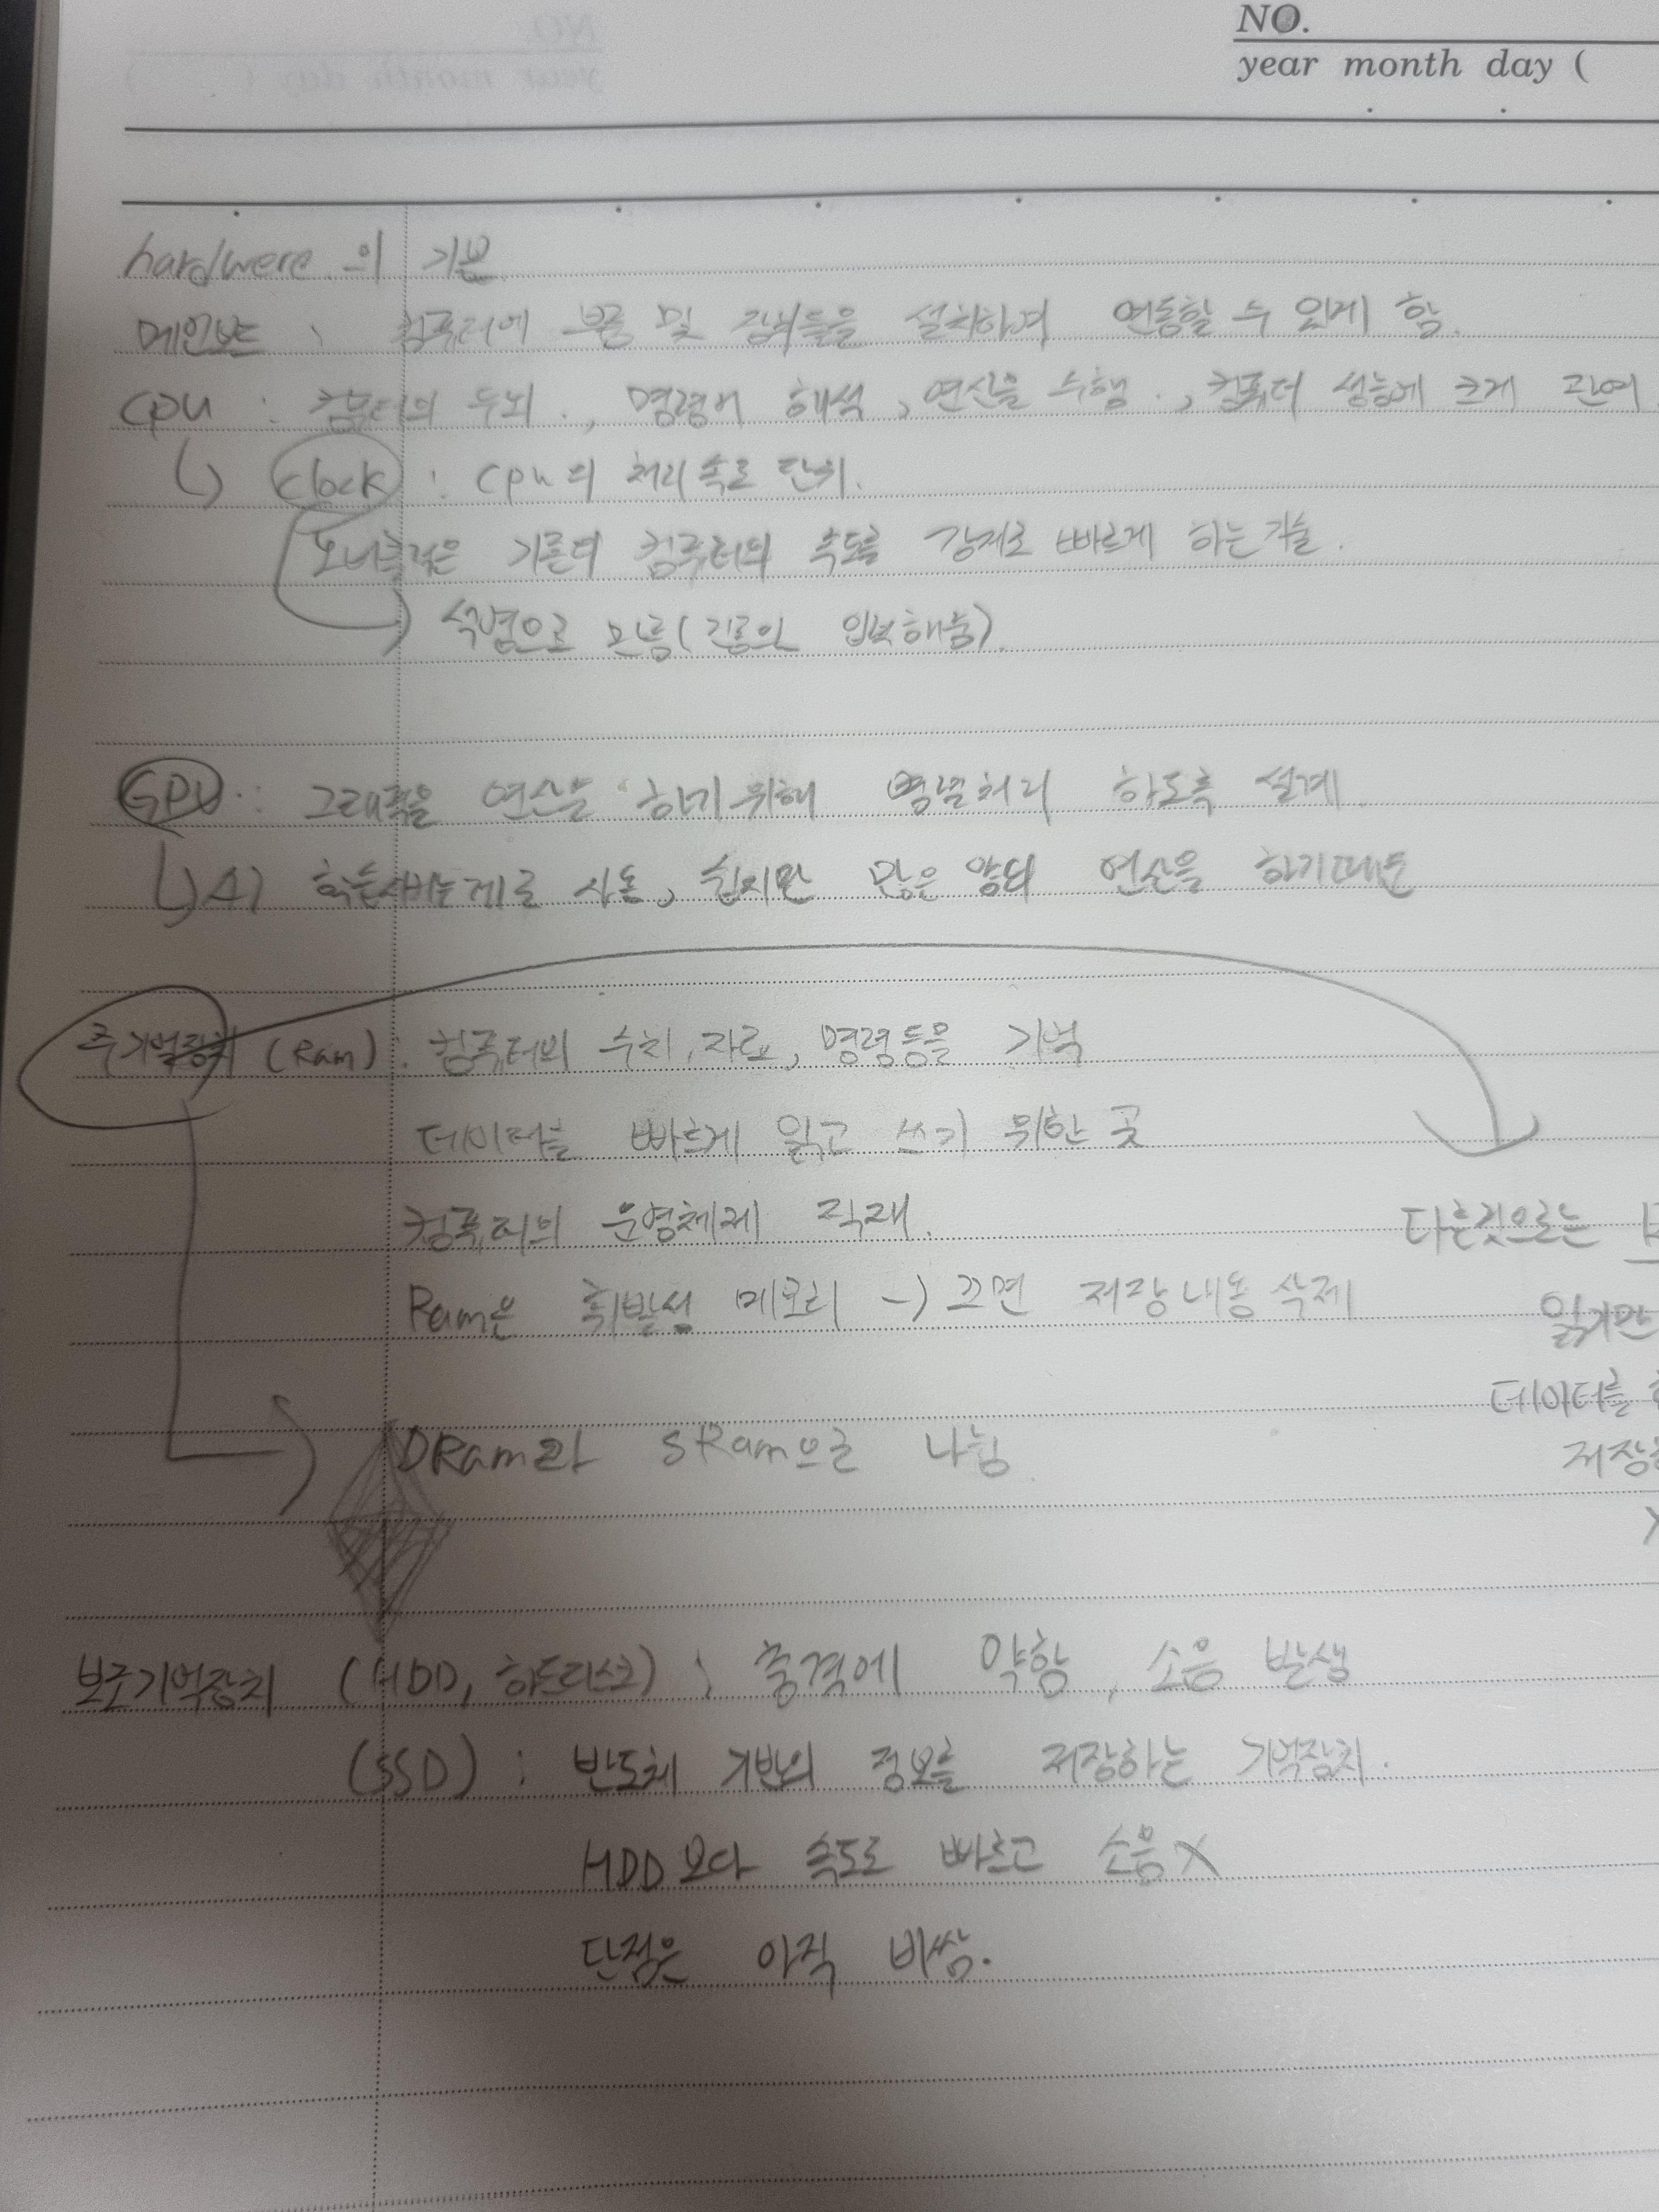 NO.
year month day (
hardwere 의 기본
메인보드 : 컴퓨터에 부품 및 장비들을 설치하여 연동할 수 있게 함.
CPU : 컴퓨터의 두뇌., 명령어 해석, 연산을 수행., 컴퓨터 성능에 크게 관여.
clock : cpu의 처리 속도 단위.
기존의 컴퓨터의 속도를 강제로 빠르게 하는 기술.
석영으로
GPU : 그래픽을 연산을 하기 위해 병렬처리 하도록 설계
AI 사용, 쉽지만 많은 양의 연산을 하기때문
주기억장치 (Ram) : 컴퓨터의 수치, 자료, 명령 등을 기억
데이터를 빠르게 읽고 쓰기 위한 곳
컴퓨터의 운영체제 적재.
다른것으로는
Ram은 휘발성 메모리 -> 끄면 저장내용 삭제
읽기만
데이터를
DRam과 SRam으로 나뉨
저장
보조기억장치 (HDD, 하드디스크) : 충격에 약함, 소음 발생
(SSD) : 반도체 기반의 정보를 저장하는 기억장치.
HDD보다 속도로 빠르고 소음X
단점은 아직 비쌈.